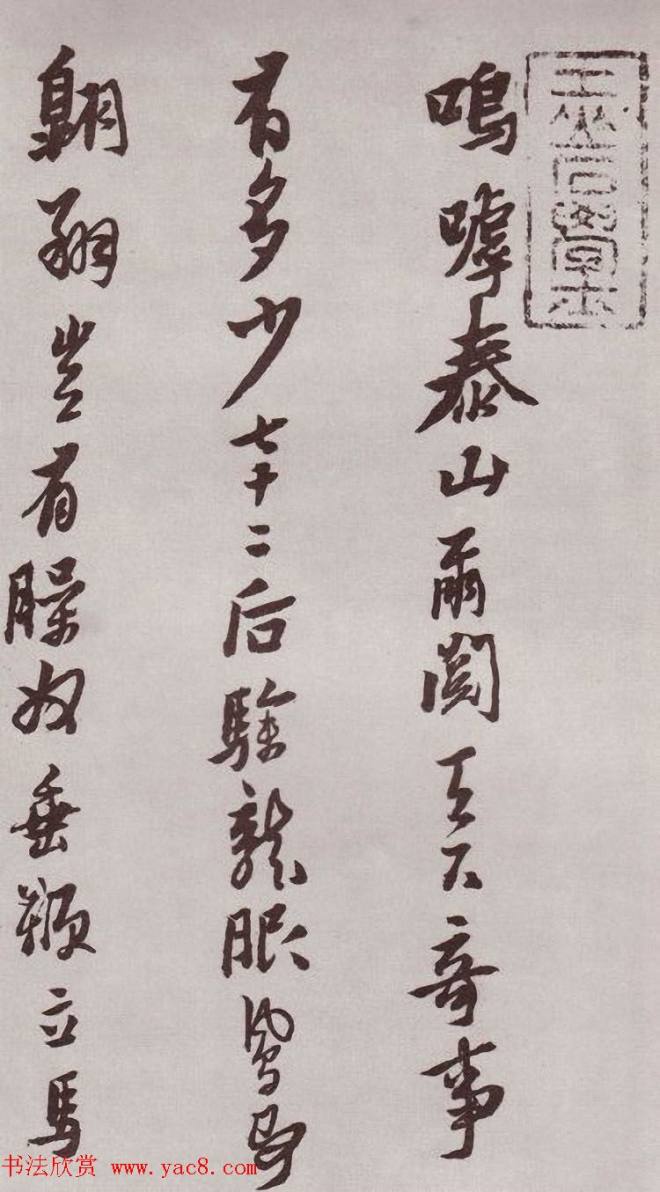 嗚嘑泰山爾閲天下奇事
有多少七十二后驂龍服鳳
翺翔豈有臊奴垂鞭立馬
书法欣赏 www.yac8.com